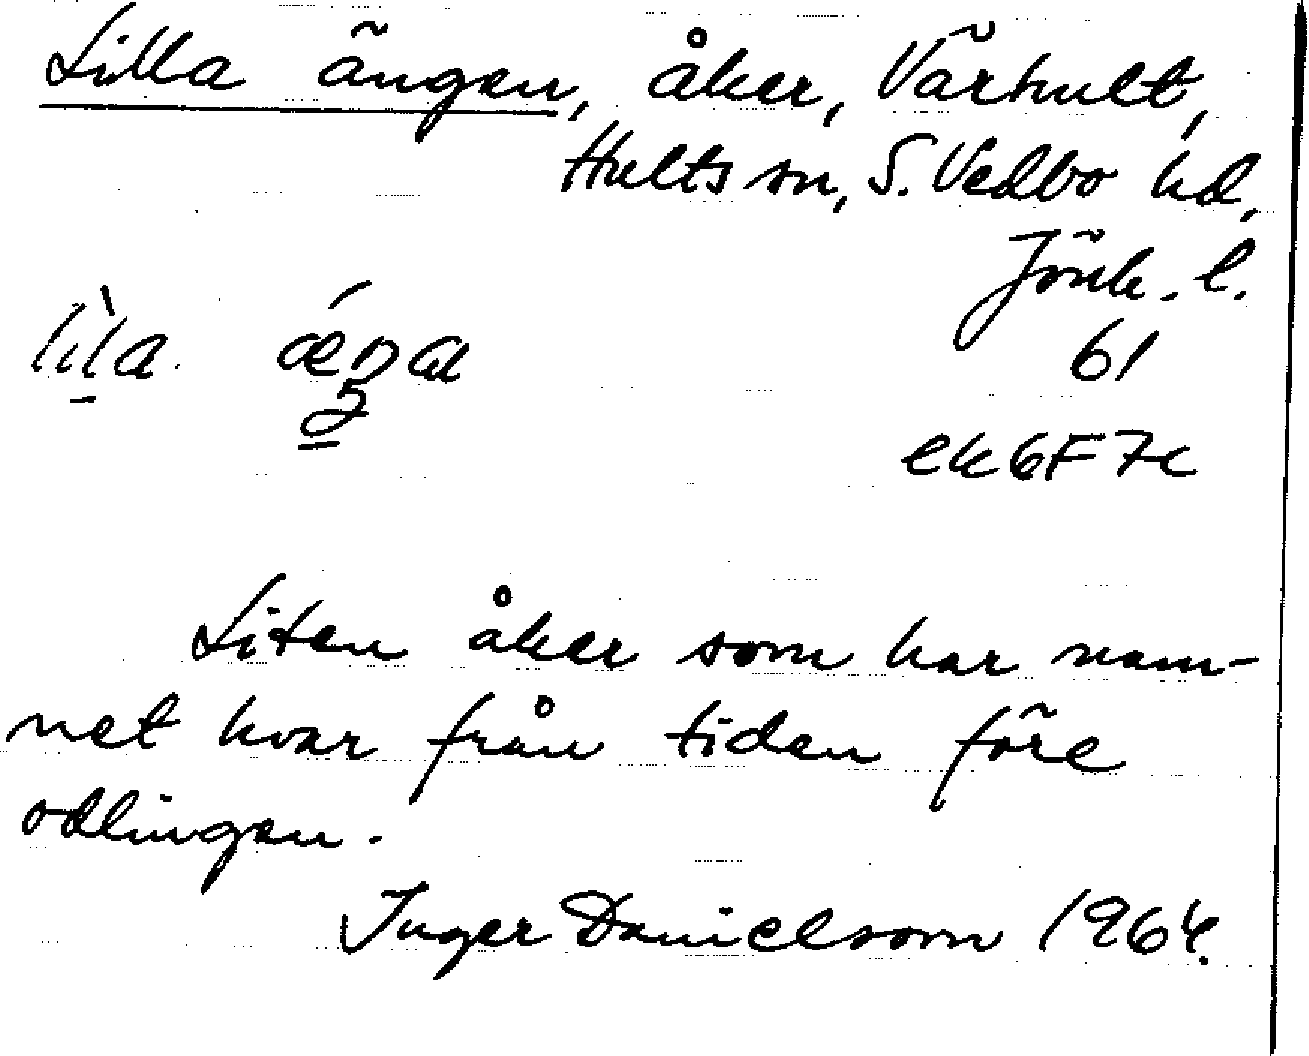 Lilla ängen, åker, Värhult,
Hults sn, S. Vedbo hd,
Jönk. l.
61
ek 6F 7c
Liten åker som har nam-
net kvar från tiden före
odlingen.
Inger Danielsson 1964.